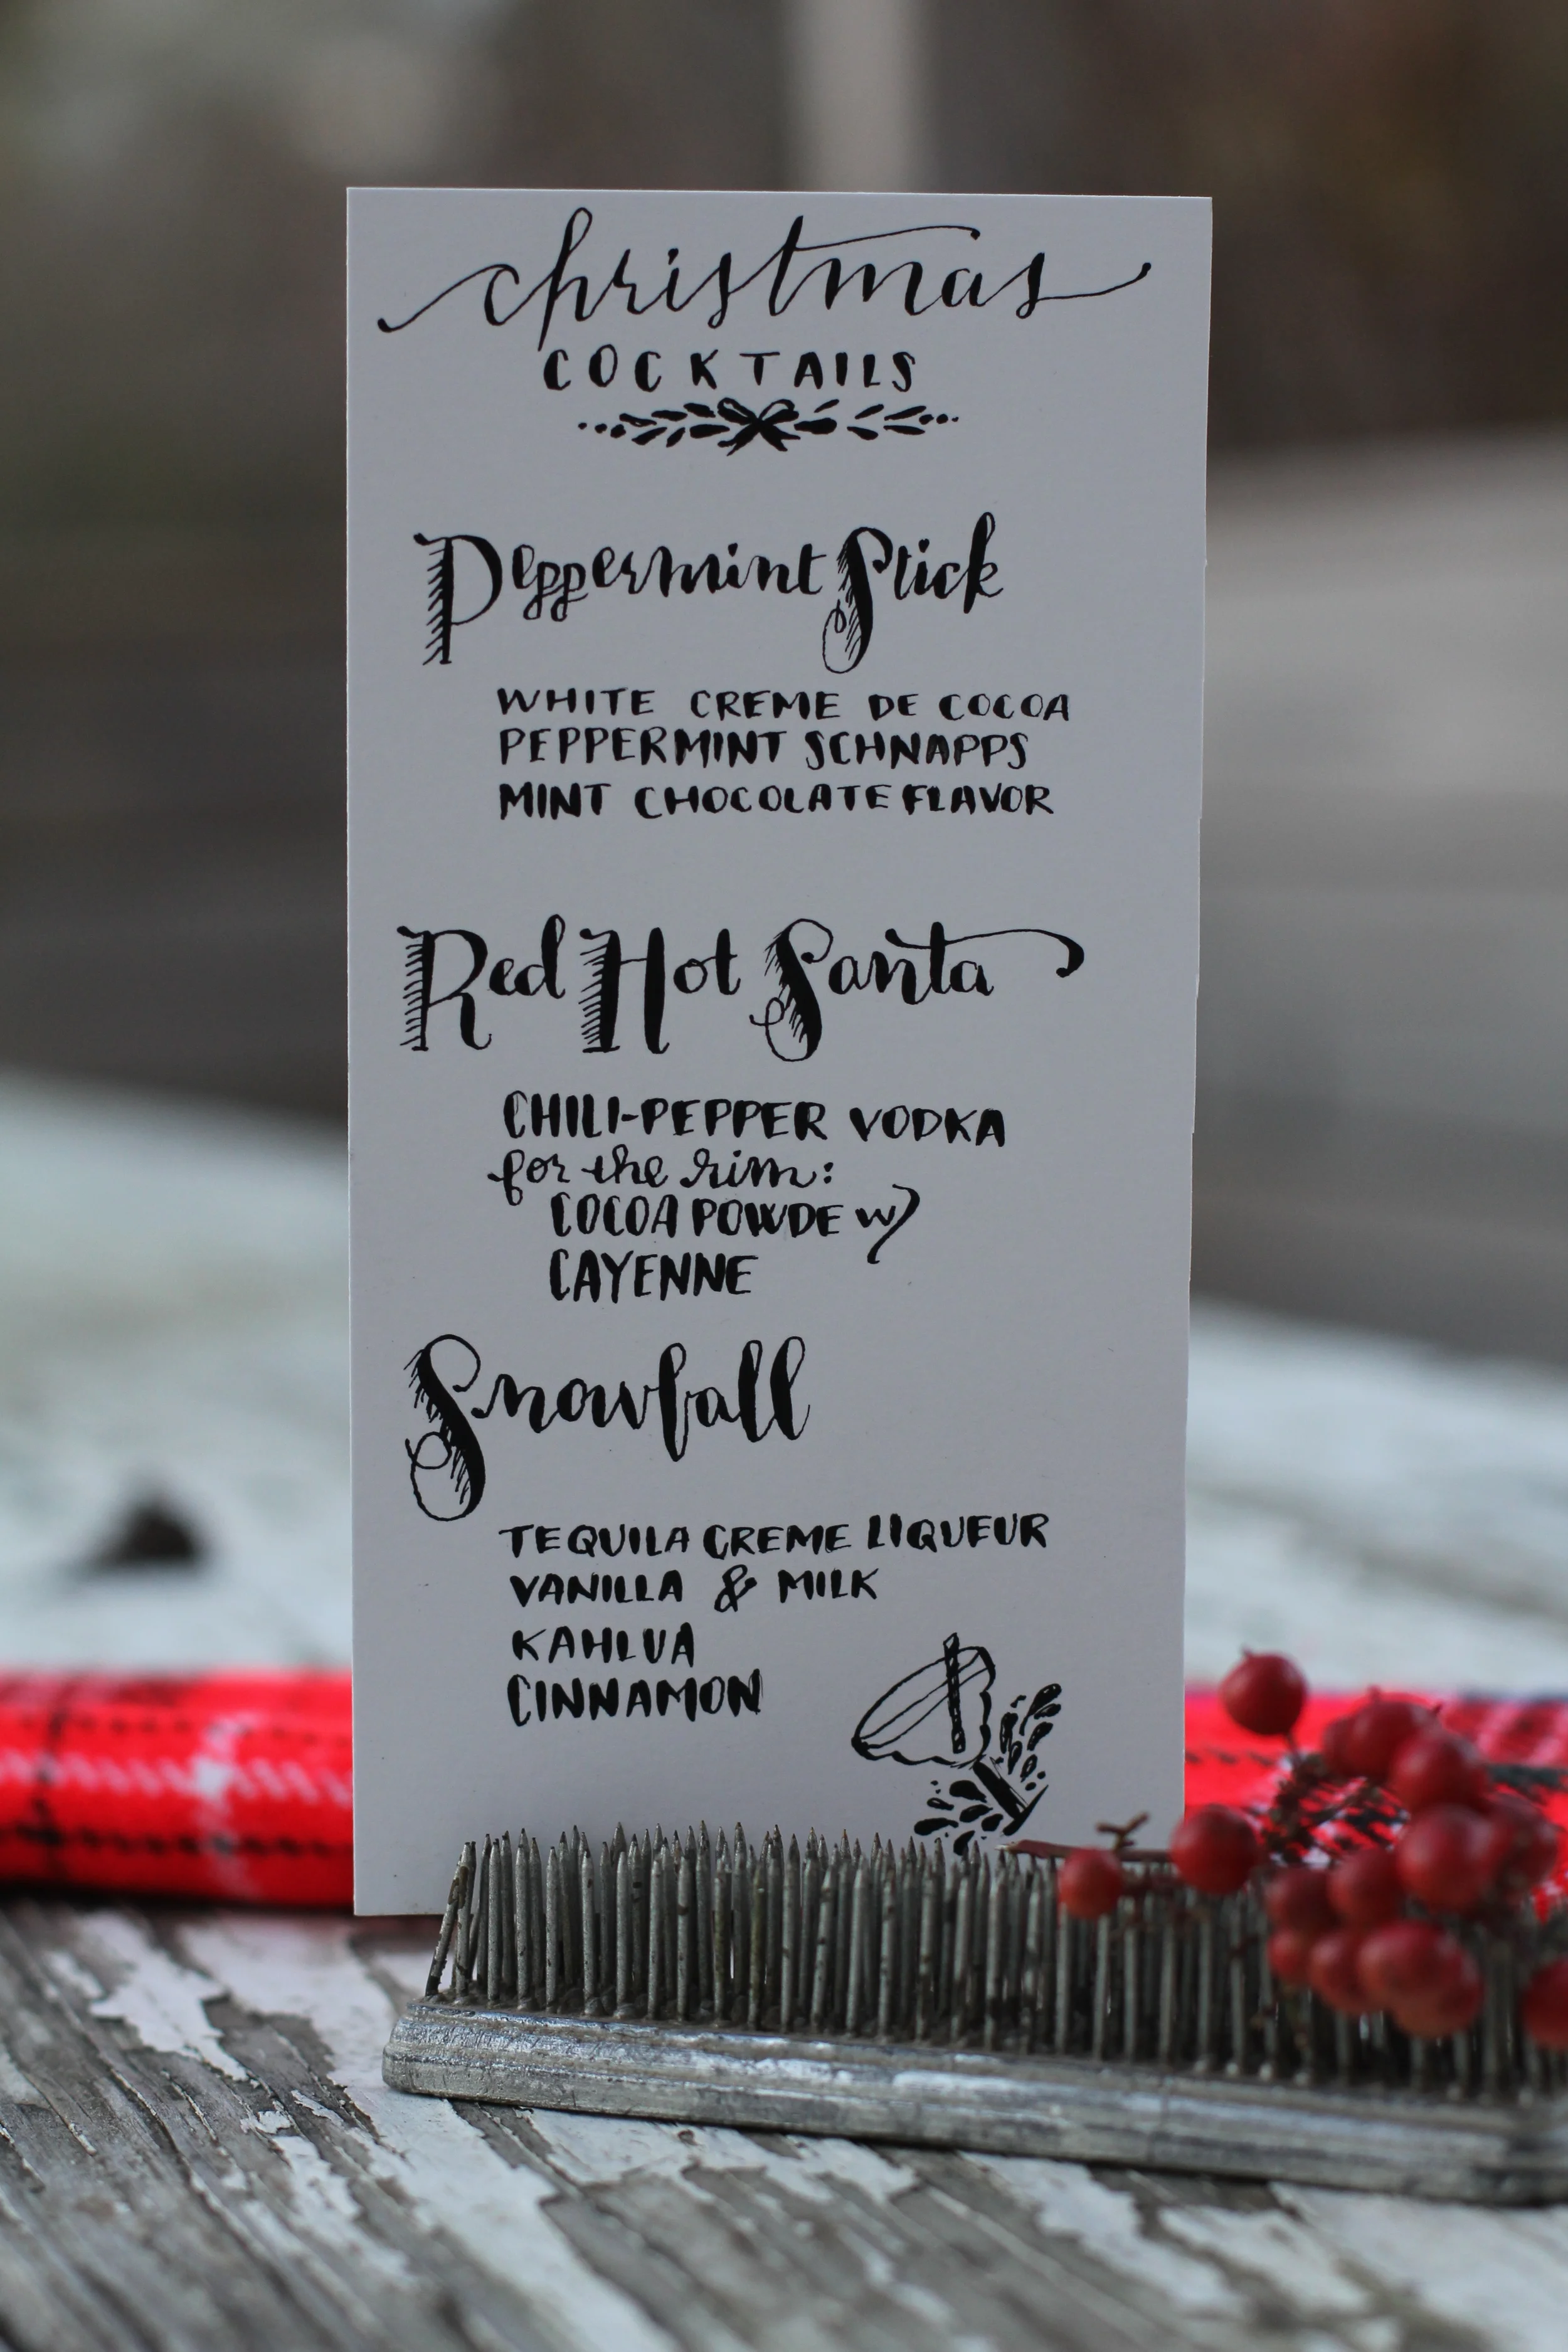 christmas
COCKTAILS
Peppermint Stick
WHITE CREME DE COCOA
PEPPERMINT SCHNAPPS
MINT CHOCOLATE FLAVOR
Red Hot Santa
CHILI-PEPPER VODKA
for the rim:
COCOA POWDE w/
CAYENNE
Snowfall
TEQUILA CREME LIQUEUR
VANILLA & MILK
KAHLUA
CINNAMON